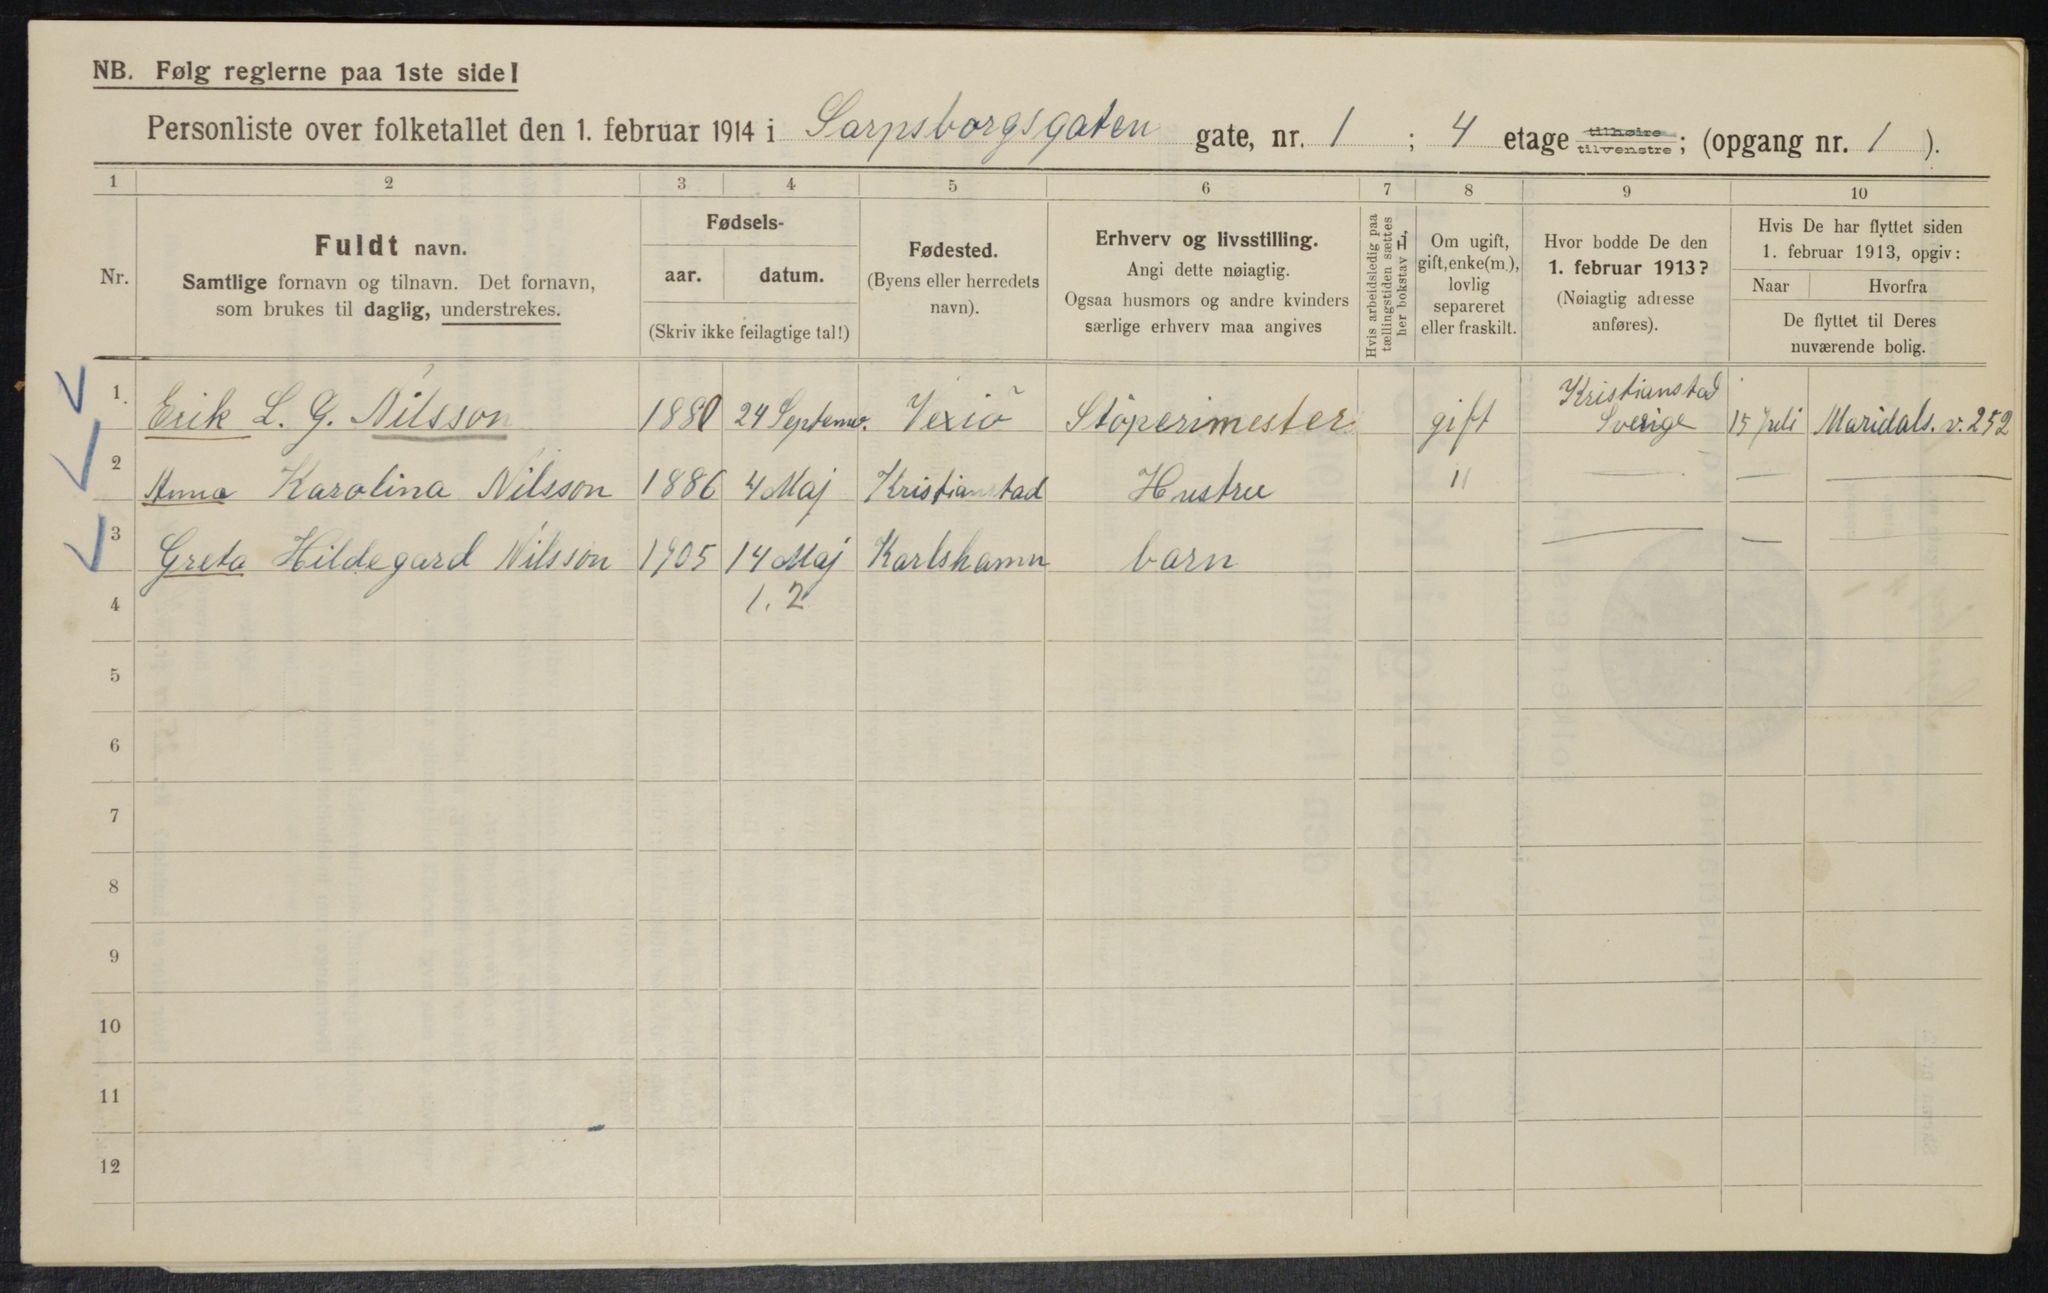 NB. Følg reglerne paa 1ste side!
Personliste over folketallet den 1. februar 1914 i Sarpsborgsgaten gate, nr. 1 ; 4 etage tilhøire tilvenstre ; (opgang nr. 1 ).
1 2 3 4 5 6 7 8 9 10
Nr.
Fuldt navn.
Samtlige fornavn og tilnavn. Det fornavn,
som brukes til daglig, understrekes.
Fødsels-
aar. datum.
(Skriv ikke feilagtige tal!)
Fødested.
(Byens eller herredets
navn).
Erhverv og livsstilling.
Angi dette nøiagtig.
Ogsaa husmors og andre kvinders
særlige erhverv maa angives
Hvis arbeidsledig paa
tællingstiden sættes
her bokstav L.
Om ugift,
gift, enke(m.),
lovlig
separeret
eller fraskilt.
Hvor bodde De den
1. februar 1913?
(Nøiagtig adresse
anføres).
Hvis De har flyttet siden
1. februar 1913, opgiv:
Naar Hvorfra
De flyttet til Deres
nuværende bolig.
1. Erik L. G. Nilsson 1880 24 Septemb. Vexiö Stöperimester gift Kristianstad Sverige 15 Juli Maridals. v. 252
2 Anna Karolina Nilsson 1886 4 Maj Kristianstad Hustru " — — —
3 Greta Hildegard Nilsson 1905 14 Maj Karlshamn barn — — —
4 1. 2
5
6
7
8
9
10
11
12